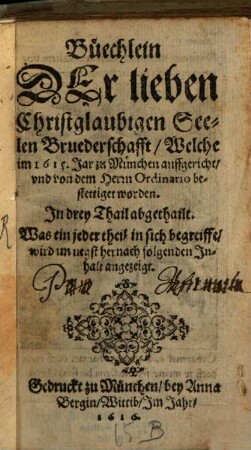 Büechlein
DEr lieben
Christglaubigen See-
len Bruederschafft/ Welche
im 1615. Jar zu München auffgericht/
vnd von dem Herrn Ordinario be-
stettiget worden.
In drey Thail abgethailt.
Was ein jeder theil in sich begreiffe/
wird im negst hernach folgenden In-
halt angezeigt.
Gedruckt zu München/ bey Anna
Bergin/ Wittib/ Im Jahr/
1616.
65. B